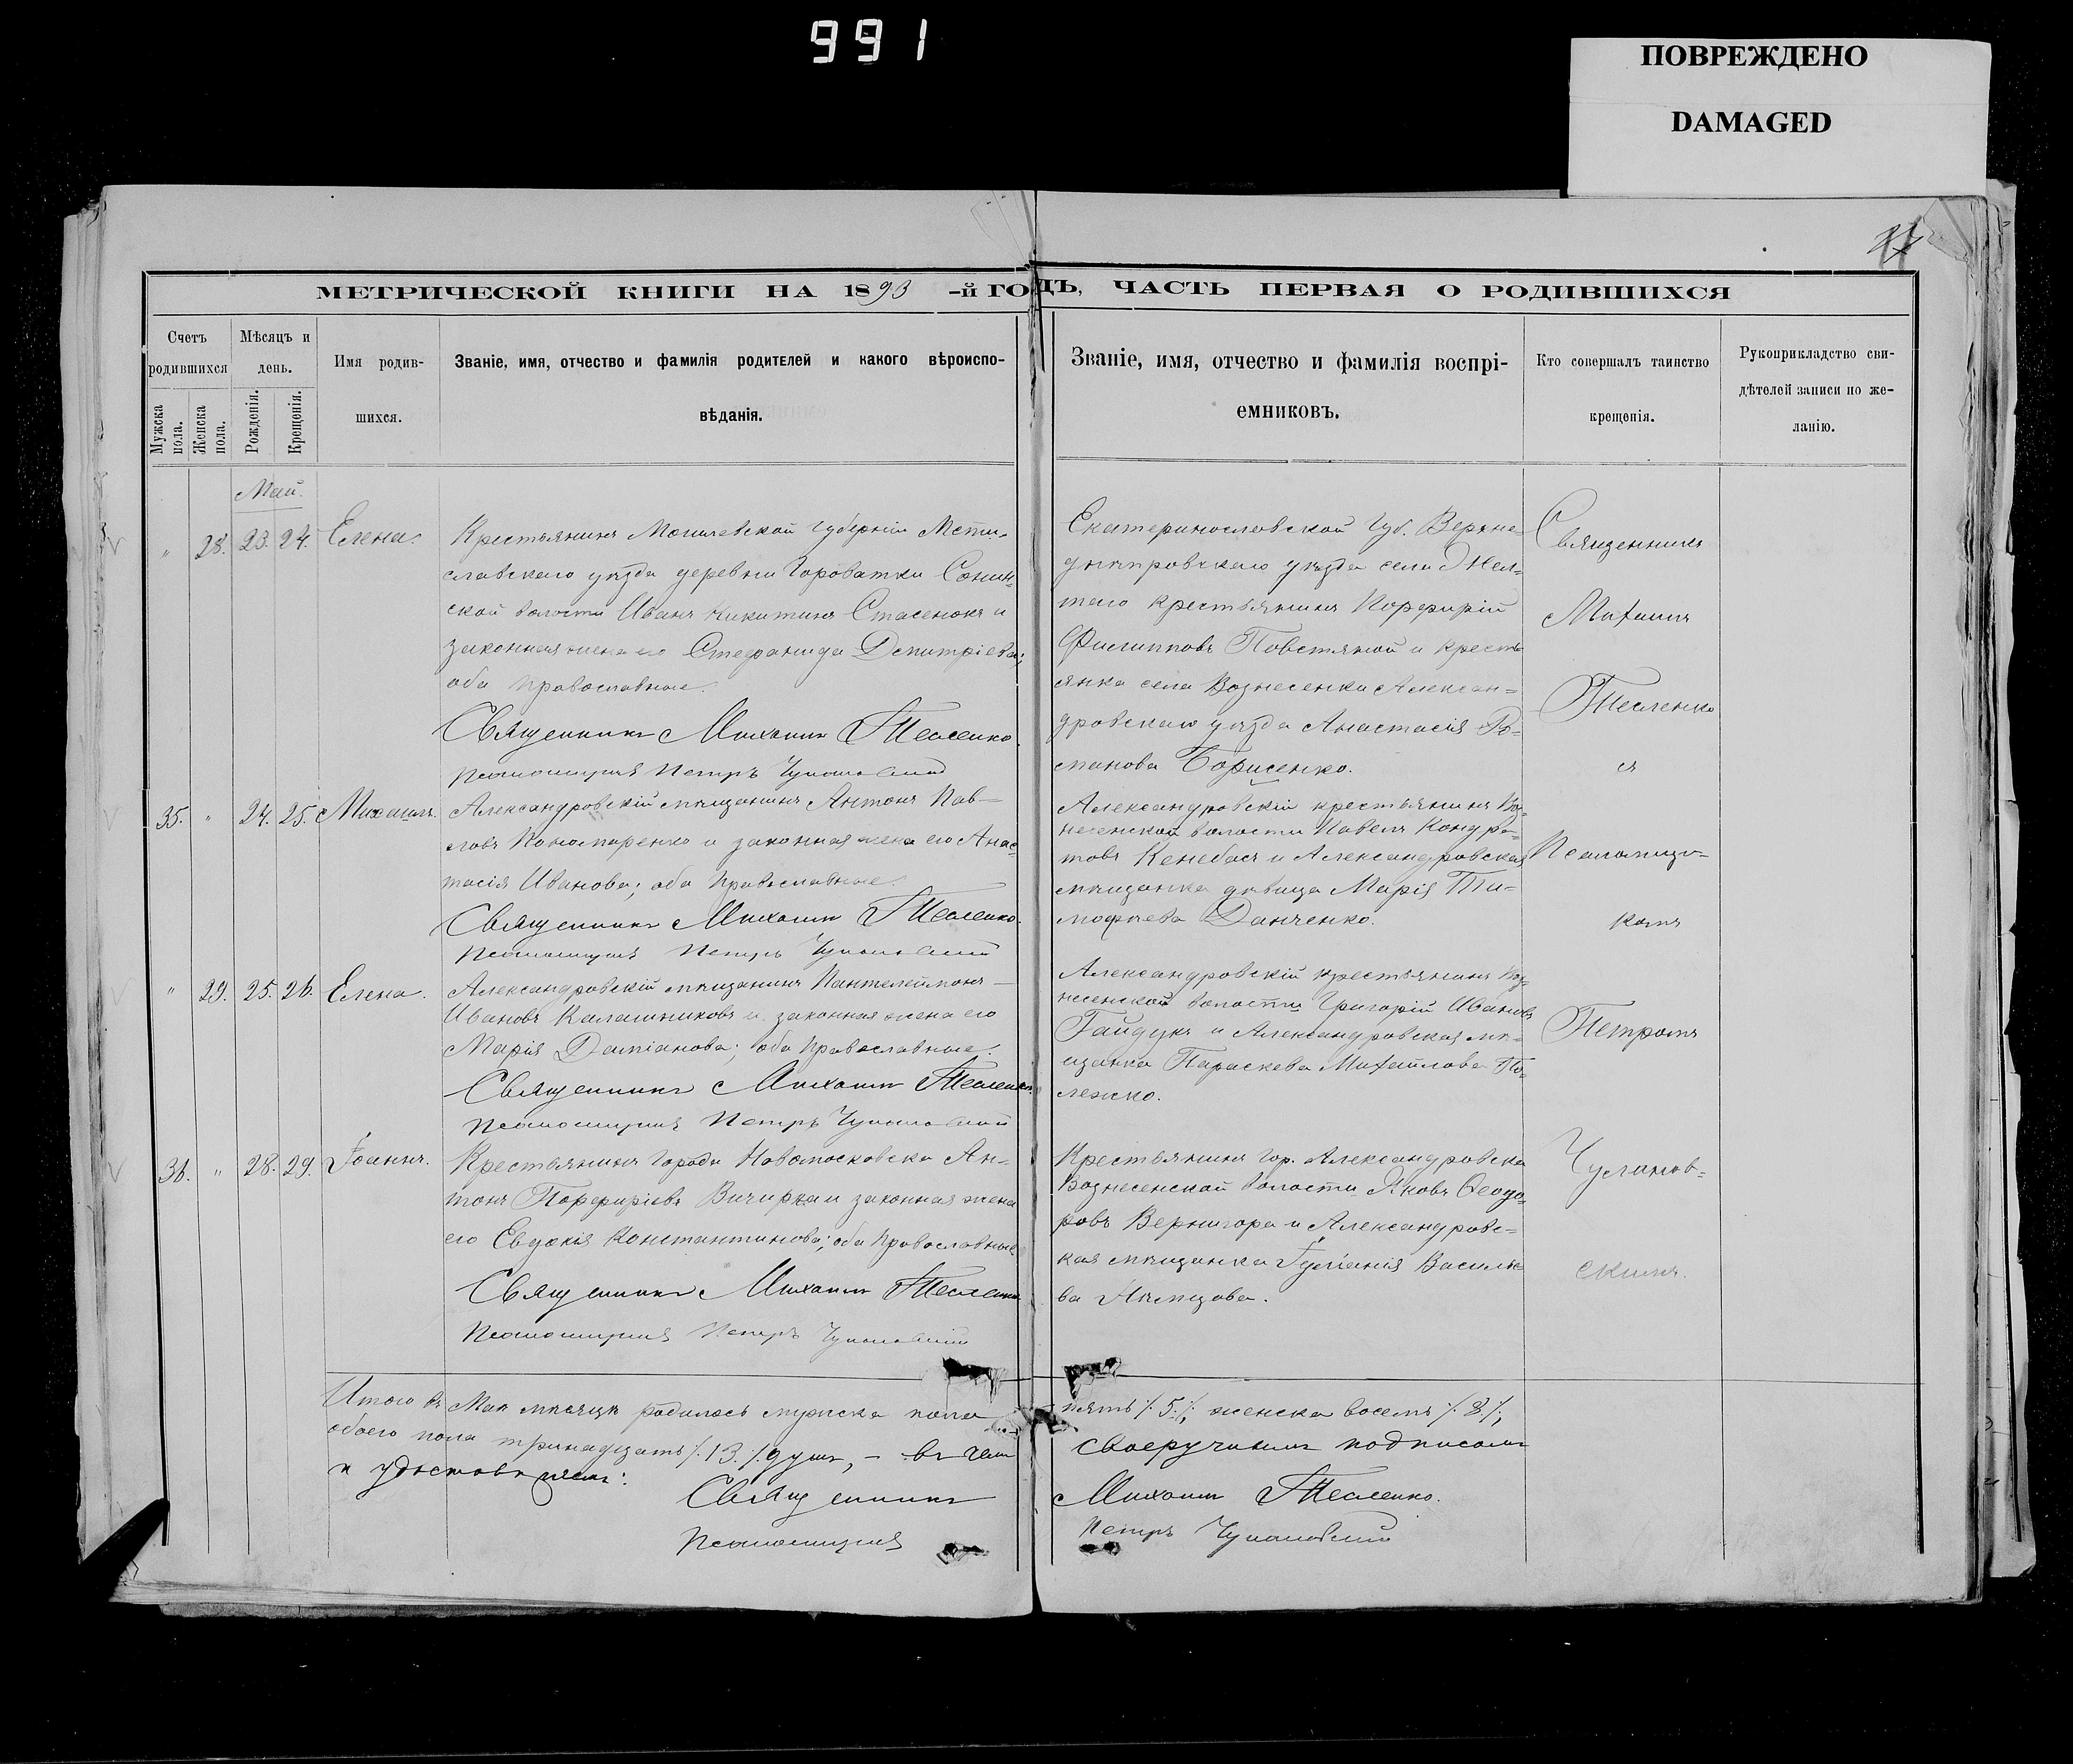 991
ПОВРЕЖДЕНО
DAMAGED
МЕТРИЧЕСКОЙ КНИГИ НА 1893 -й ГОДЪ, ЧАСТЬ ПЕРВАЯ О РОДИВШИХСЯ
Счетъ родившихся
Мужеска пола.
Женска пола.
Мѣсяцъ и день.
Рожденія.
Крещенія.
Имя родив-
шихся.
Званіе, имя, отчество и фамилія родителей и какого вѣроиспо-
вѣданія.
Званіе, имя, отчество и фамилія воспрі-
емниковъ.
Кто совершалъ таинство
крещенія.
Рукоприкладство сви-
дѣтелей записи по же-
ланію.
Май.
" 28. 23. 24. Елена.
Крестьянинъ Могилевской губерніи Мсти-
славскаго уѣзда деревни Гороватки Сонин-
ской волости Иванъ Никитинъ Стасенокъ и
законная жена его Стефанида Димитріева;
оба православные.
Священникъ Михаилъ Тесленко.
Псаломщикъ Петръ Чулановскій
Екатеринославской губ. Верхне-
днѣпровскаго уѣзда села Жел-
таго крестьянинъ Порфирій
Филипповъ Повстяной и кресть-
янка села Вознесенки Алексан-
дровскаго уѣзда Анастасія Ро-
манова Борисенко.
35. " 24. 25. Михаилъ.
Александровскій мѣщанинъ Антонъ Пав-
ловъ Пономаренко и законная жена его Анас-
тасія Иванова; оба православные.
Священникъ Михаилъ Тесленко.
Псаломщикъ Петръ Чулановскій
Александровскій крестьянинъ Воз-
несенской волости Павелъ Кондра-
товъ Кенебасъ и Александровская
мѣщанка дѣвица Марія Ти-
мофеева Данченко.
" 29. 25. 26. Елена.
Александровскій мѣщанинъ Пантелеймонъ
Ивановъ Калашниковъ и законная жена его
Марія Даміанова; оба православные.
Священникъ Михаилъ Тесленко.
Псаломщикъ Петръ Чулановскій
Александровскій крестьянинъ Воз-
несенской волости Григорій Ивановъ
Гайдукъ и Александровская мѣ-
щанка Параскева Михайлова По-
лежко.
36. " 28. 29. Іоаннъ.
Крестьянинъ города Новомосковска Ан-
тонъ Порфиріевъ Вичирка и законная жена
его Евдокія Константинова; оба православные
Священникъ Михаилъ Тесленко
Псаломщикъ Петръ Чулановскій
Крестьянинъ гор. Александровска
Вознесенской волости Яковъ Ѳеодо-
ровъ Вернигора и Александровс-
кая мѣщанка Іуліанія Василье-
ва
Священникъ
Михаилъ
Тесленко
съ
Псаломщи-
комъ
Петромъ
Чуланов-
скимъ.
Итого въ Маѣ мѣсяцѣ родилось мужска пола пять /.5./, женска восемь /.8./,
обоего пола тринадцать /.13./ душъ, – въ чемъ своеручнымъ подписомъ
и удостовѣряемъ:
Священникъ Михаилъ Тесленко.
Псаломщикъ Петръ Чулановскій